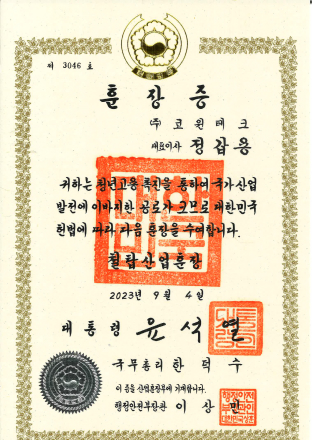 제 3046 호
훈장증
(주) 코윈테크
대표이사 정갑용
귀하는 청년고용 촉진을 통하여 국가산업
발전에 이바지한 공로가 크므로 대한민국
헌법에 따라 다음 훈장을 수여합니다.
철탑산업훈장
2023년 9월 4일
대통령 윤석열
국무총리 한덕수
이 증을 산업훈장부에 기재합니다.
행정안전부장관 이상민